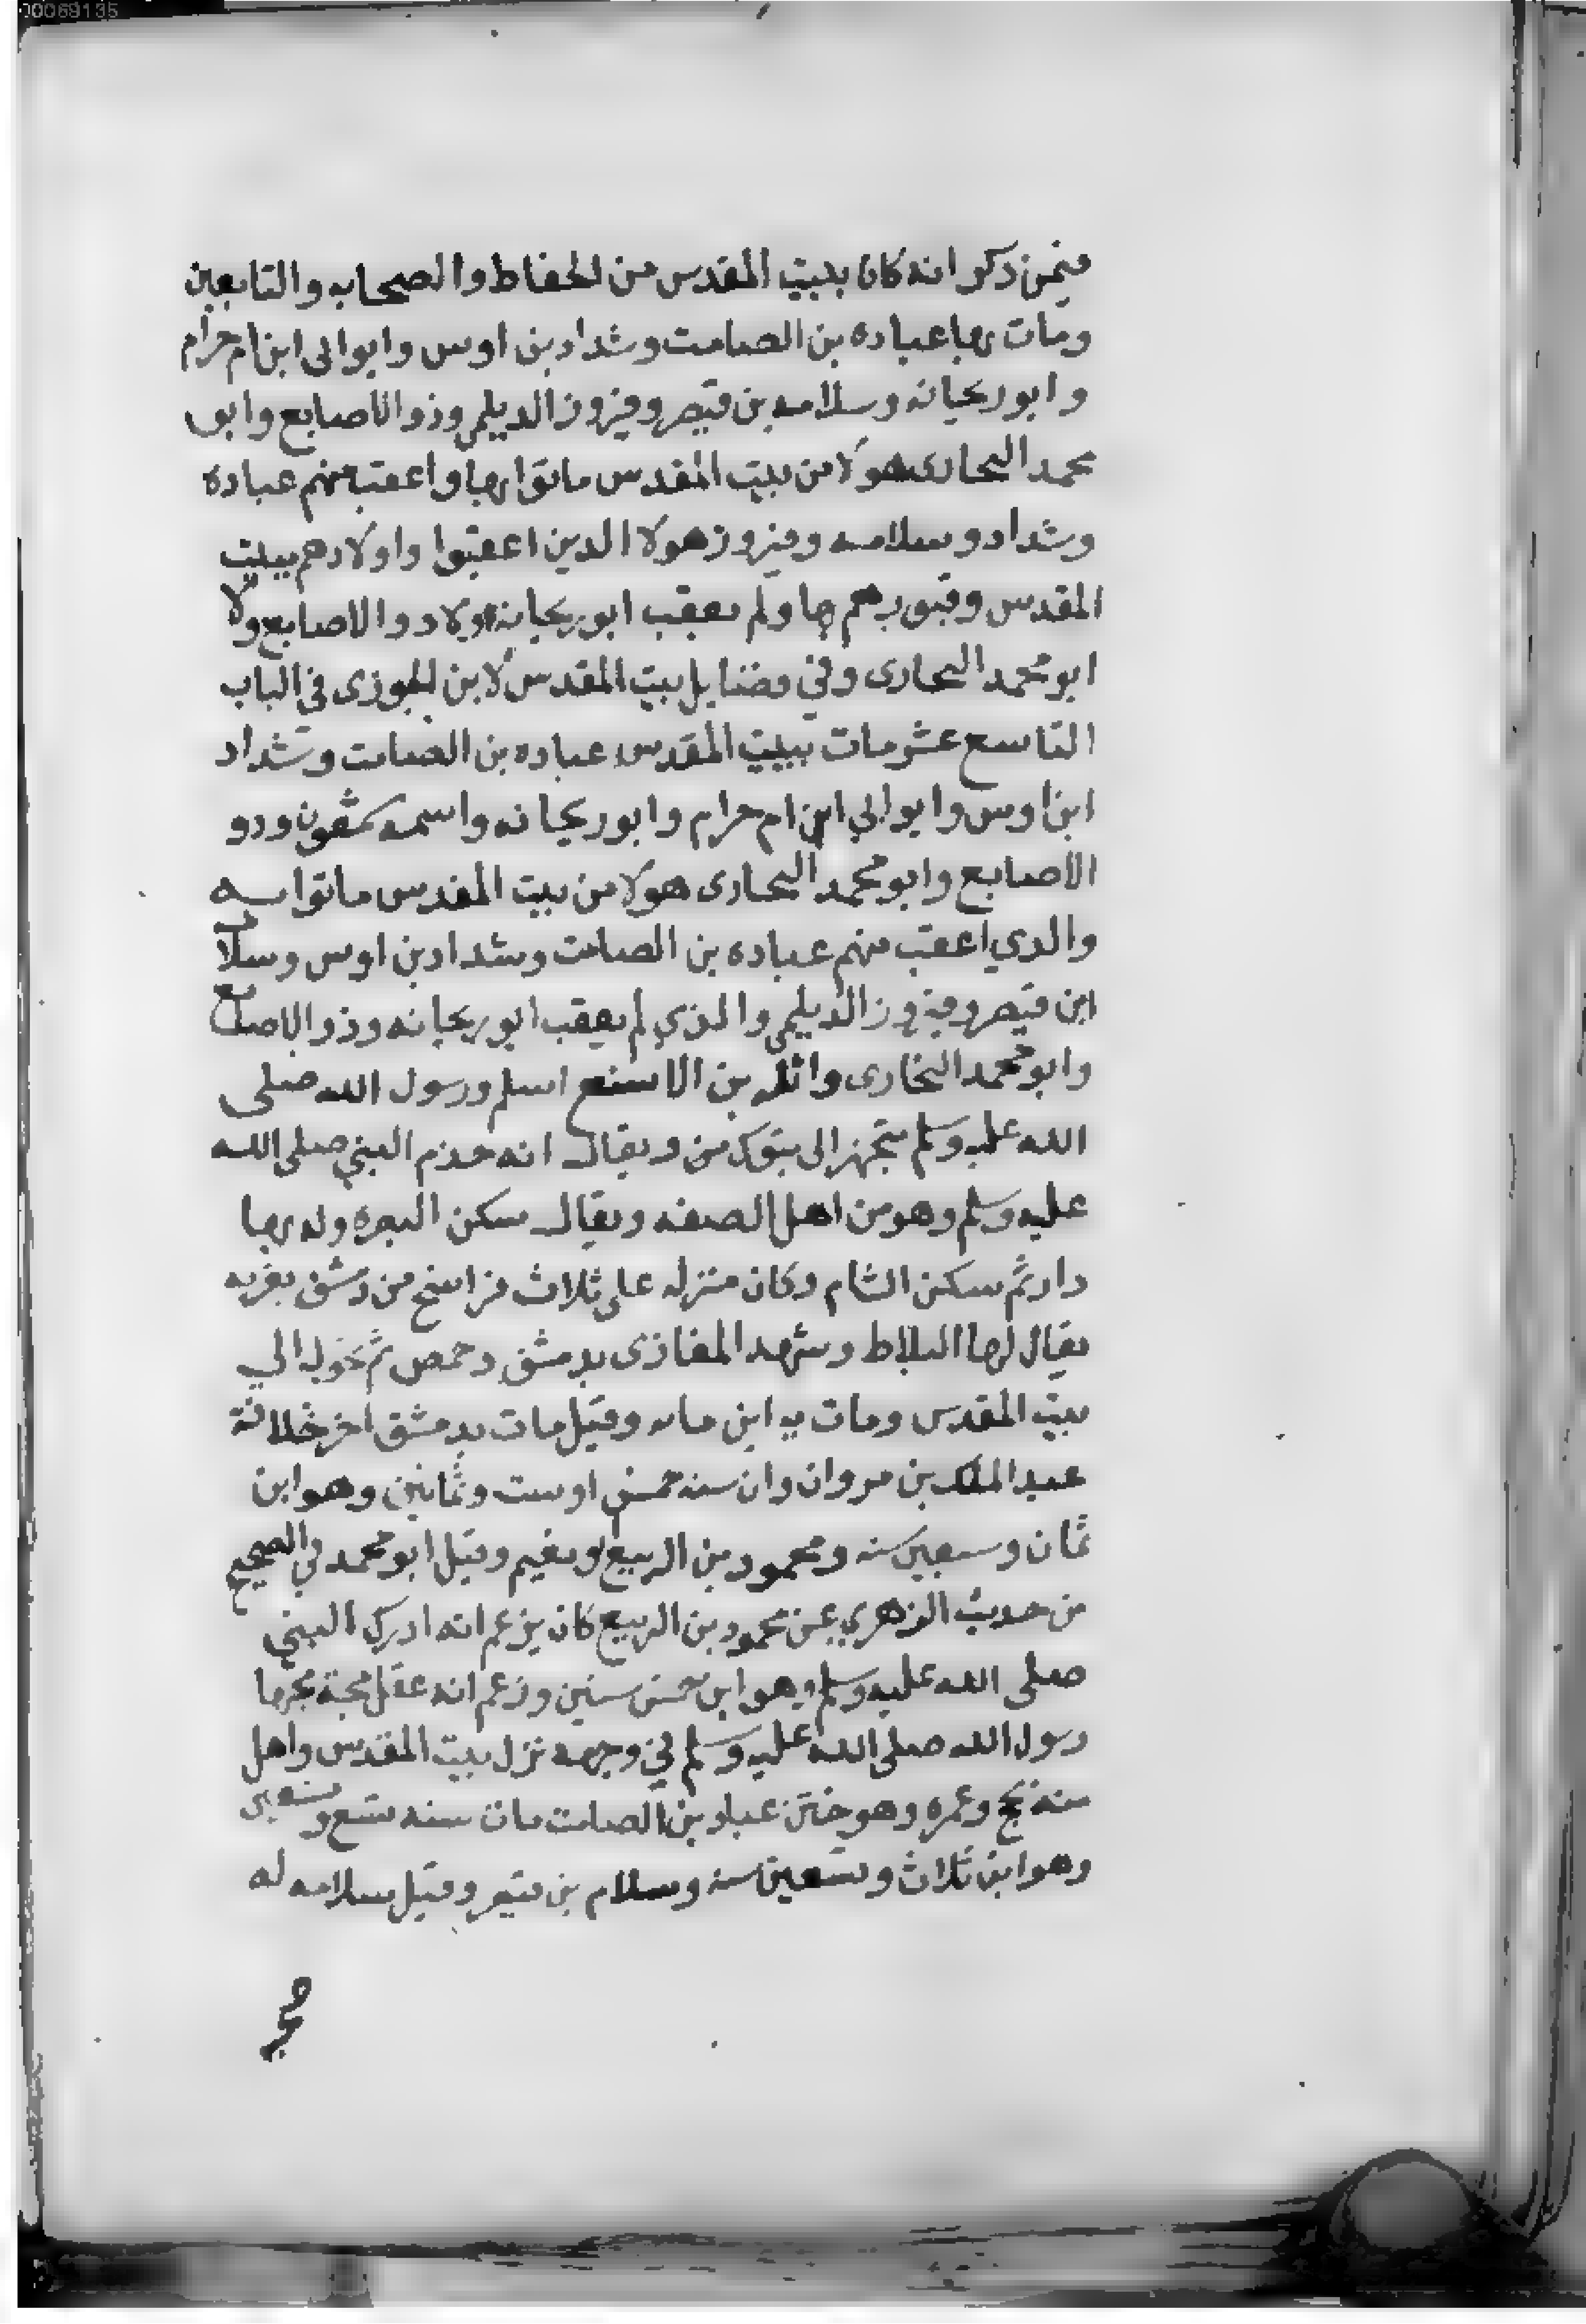 00069135
فيمن ذكر انه كان ببيت المقدس من الحفاظ والصحابه والتابعين
ومات بها عباده بن الصامت وشداد بن اوس وابو ابى ابن ام حرام
وابو ريحانه وسلامه بن قيصر وفيروز الديلمى وذو الاصابع وابو
محمد البحارى هولا من بيت المقدس ماتوا بها واعقب منهم عباده
وشداد وسلامه وفيروز هولا الدين اعقبوا واولادهم ببيت
المقدس وقبورهم بها ولم يعقب ابو ريحانه ولا دو الاصابع ولا
ابو محمد البحارى وفي فضايل بيت المقدس لابن الجوزى في الباب
التاسع عشر مات ببيت المقدس عباده بن الصامت وشداد
ابن اوس وابو ابي ابن ام حرام وابو ريحانه واسمه شمعون ودو
الاصابع وابو محمد البحارى هولا من بيت المقدس ماتوا به
والدي اعقب منهم عباده بن الصامت وشداد بن اوس وسلا
ابن قيصر وفيروز الديلمى والذي لم يعقب ابو ريحانه وذو الاصابع
وابو محمد البخارى واثله بن الاسقع اسلم ورسول الله صلى
الله عليه وسلم يتجهز الى تبوك من ويقال انه خدم النبي صلى الله
عليه وسلم وهو من اهل الصفه ويقال سكن البصره وله بها
دار ثم سكن الشام وكان منزله على ثلاث فراسخ من دمشق بقريه
يقال لها البلاط وشهد المغازى بدمشق وحمص ثم تحول الي
بيت المقدس ومات به ابن مايه وقيل مات بدمشق اخر خلافة
عبد الملك بن مروان وان سنه خمس او ست وثمانين وهو ابن
ثمان وسبعين سنه ومحمود بن الربيع ابو نعيم وقيل ابو محمد في الصحيح
من حديث الزهري عن محمود بن الربيع كان يزعم انه ادرك النبي
صلى الله عليه وسلم وهو ابن خمس سنين وزعم انه عقل مجة مجها
رسول الله صلى الله عليه وسلم في وجهه نزل بيت المقدس واهل
منه بحج وعمره وهو ختن عباد بن الصامت مات سنه تسع وتسعين
وهو ابن ثلاث وتسعين سنه وسلام بن قيصر وقيل سلامه له